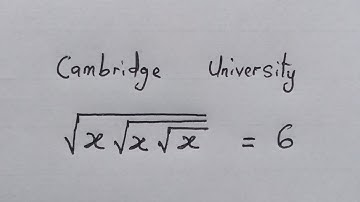 Cambridge University
√(x√(x√x)) = 6